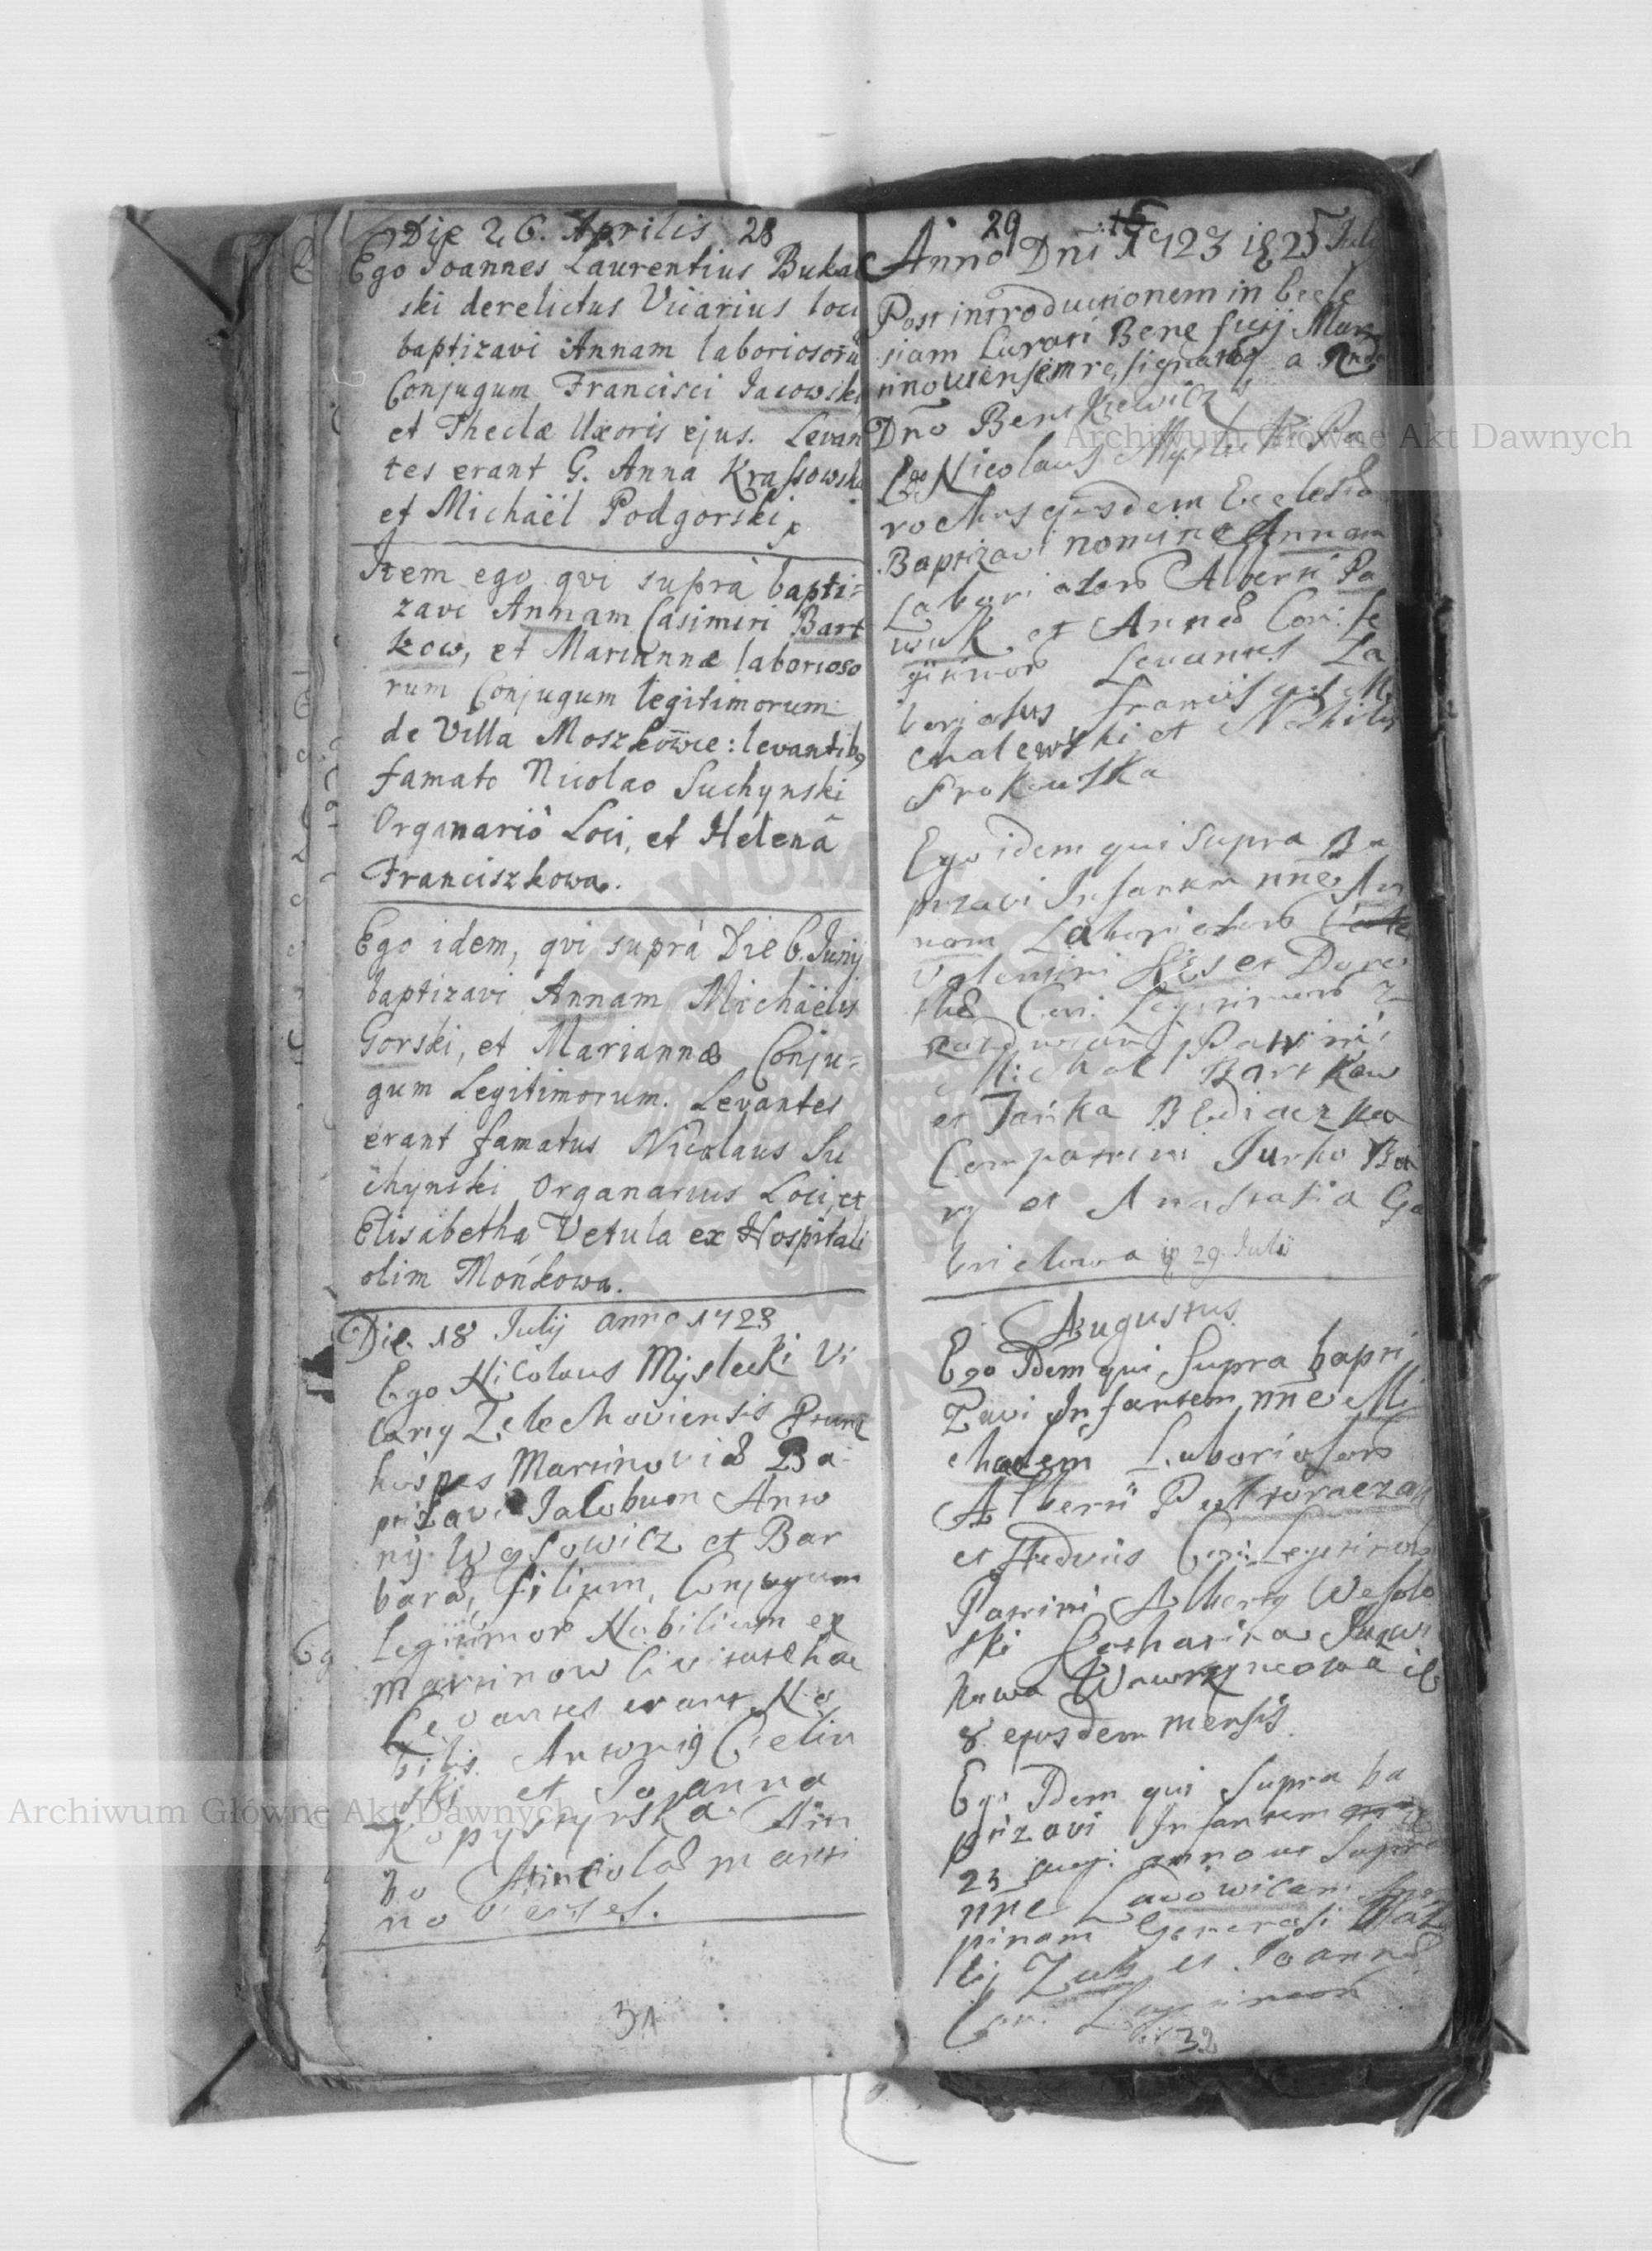 Die 26. Aprilis 28
Ego Joannes Laurentius Bukal
ski derelictus Vicarius loci
baptizavi Annam laboriosorũ
Conjugum Francisci Jacowski
et Theclæ Uxoris ejus. Levan
tes erant G. Anna Krassowska
et Michaël Podgorski
Item ego qvi suprà bapti=
zavi Annam Casimiri Bart
kow, et Mariannæ laborioso
rum Conjugum legitimorum
de Villa Moszkowce: levantibq
famato Nicolao Suchynski
Organariô Loci, et Helenâ
Franciszkowa.
Ego idem, qvi suprà Die 6. Junij
baptizavi Annam Michaëlis
Gorski, et Mariannæ Conju=
gum Legitimorum. Levantes
erant famatus Nicolaus Su
chynski Organarius Loci, et
Elisabetha Vetula ex Hospitali
olim Mońkowa.
Die. 18 Julij anno 1723
Ego Nicolaus Myslecki Vi
carig Zelechoviensis
hospes Martinoviæ Ba
ptizavi Jacobum Anto
nij Wąsowicz et Bar
baræ, filium, Conjugum
Legitimor Nobilium ex
Martinow Civitate hac
Levantes erant No
bilis Antonig Cielin
ski et Joanna
Kopystynska
bo Incolæ marti
novienses.
31
29
Anno Dni 1723 18 25 Julij
Post introductionem in Eccle
siam Curati Beneficij Mar
tinoviensem resignatq a Rndo
Dno Berekiewicz
Ego Nicolaus Myslecki Pa
rochus ejusdem Ecclesiæ
Baptizavi nomine Annam
Laboriosor Alberti Pa
wuk et Annæ Con: Le
gitimor Levantes La
boriosus Franciscus Mi
chalewski et Nobilis
Prokouska
Ego idem qui supra Ba
ptizavi Infantem nne An
nam Laboriosor
Valentini et Doro
theæ Con. Legitimor
Patrini
Michał Bartkow
et Jańka Bediaczka
Compatrini Jurko Ba
ry et Anastasia Ga
brielowa 29. Julij
Augustus
Ego Idem qui Supra bapti
zavi Infantem nne Mi
chaelem Laboriosor
Alberti
et Hedvis Con: Legitimor
Patrini Albertg Wesolo
ski Catharina
kowa Wawrzyncowa
8. ejusdem mensis
Ego Idem qui Supra ba
ptizavi Infantem
23 anno ut Supra
nne Ludowicam
pinam Generosi
Zuk et Joannæ
Con. Legitimor
32
Archiwum Główne Akt Dawnych
Archiwum Główne Akt Dawnych